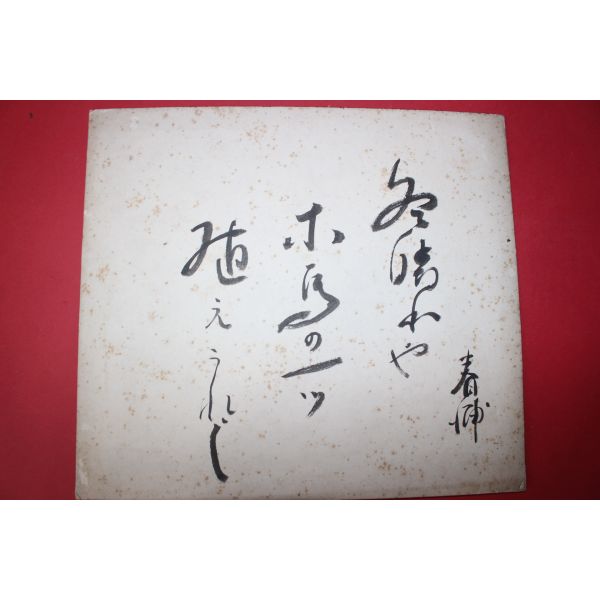 冬晴れや
木馬の一ツ
殖えうれし
春